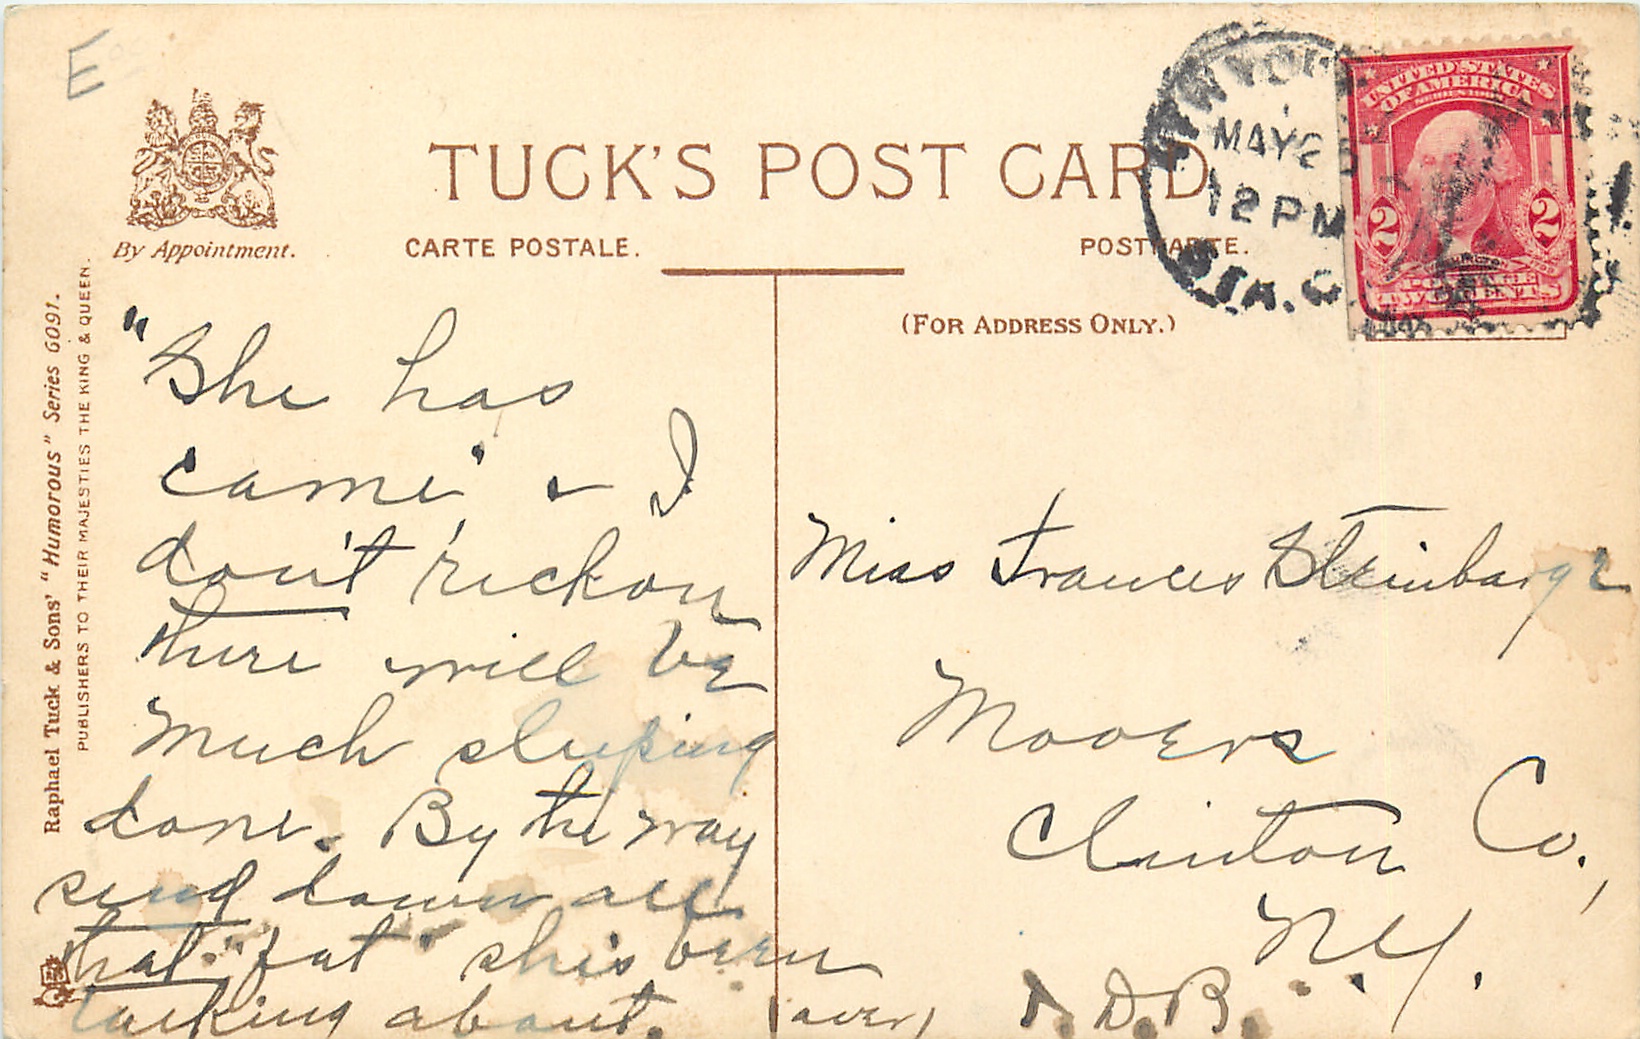 E
TUCK'S POST CARD
By Appointment.
CARTE POSTALE.
POSTKARTE.
(FOR ADDRESS ONLY.)
Raphael Tuck & Sons' "Humorous" Series 6091.
PUBLISHERS TO THEIR MAJESTIES THE KING & QUEEN.
NEW YORK
MAY 2
12 PM
STA.
UNITED STATES
OF AMERICA
2 2
POSTAGE
TWO CENTS
"She has
came" & I
don't 'rickon
there will be
much sleeping
done. By the way
send down all
that "fat" she's been
talking about.
(over)
Miss Frances
Mooers
Clinton Co.,
N.Y.
D.B.